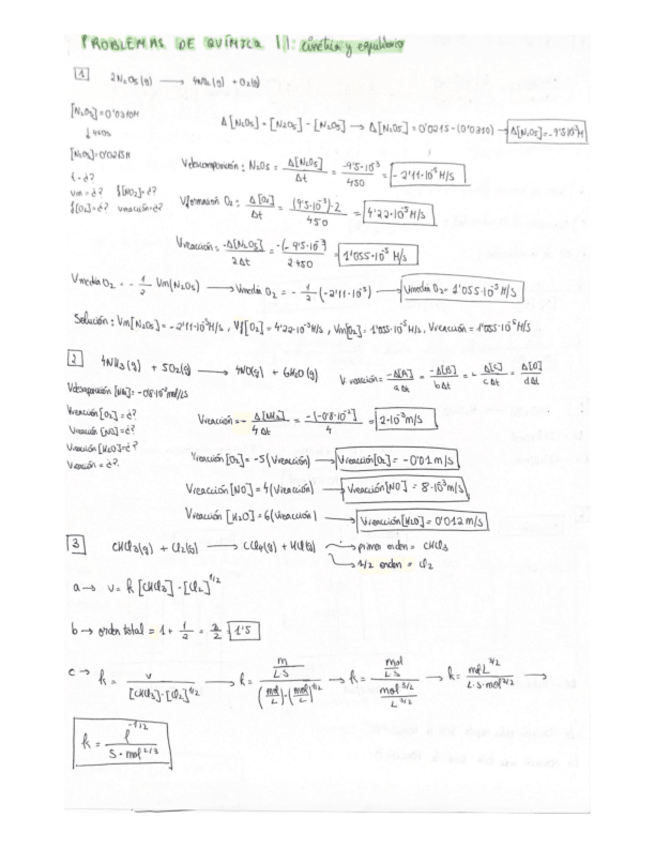 PROBLEMAS DE QUÍMICA 11: cinética y equilibrio
1
2N₂O₅(g) → 4NO₂(g) + O₂(g)
[N₂O₅]=0'0310M
↓ 450s
[N₂O₅]=0'0215M
Δ[N₂O₅] = [N₂O₅] - [N₂O₅] → Δ[N₂O₅] = 0'0215-(0'0310) → Δ[N₂O₅]=-9'5·10⁻³M
Vdescomposición: N₂O₅ = Δ[N₂O₅]/Δt = -9'5·10⁻³/450 = -2'11·10⁻⁵M/s
vm=¿? f[NO₂]=¿?
f[O₂]=¿? vreacción=¿?
Vformación O₂: Δ[O₂]/Δt = (9'5·10⁻³)·2/450 = 4'22·10⁻⁵M/s
Vreacción = -Δ[N₂O₅]/2Δt = -(-9'5·10⁻³)/2·450 = 1'055·10⁻⁵ M/s
Vmedia O₂ = -1/2 Vm(N₂O₅) → Vmedia O₂ = -1/2 (-2'11·10⁻⁵) → Vmedia O₂= 1'055·10⁻⁵M/s
Solución: Vm[N₂O₅]=-2'11·10⁻⁵M/s, Vf[O₂]=4'22·10⁻⁵M/s, Vm[O₂]=1'055·10⁻⁵M/s, Vreacción=1'055·10⁻⁵M/s
2
4NH₃(g) + 5O₂(g) → 4NO(g) + 6H₂O(g)
V reacción = -Δ[A]/aΔt = -Δ[B]/bΔt = Δ[C]/cΔt = Δ[D]/dΔt
Vdesaparición [NH₃]=-0'8·10⁻²mol/Ls
Vreacción [O₂]=¿?
Vreacción [NO]=¿?
Vreacción [H₂O]=¿?
Vreacción = ¿?
Vreacción = - Δ[NH₃]/4Δt = -(-0'8·10⁻²)/4 = 2·10⁻³m/s
Vreacción[O₂] = -5(Vreacción) → Vreacción[O₂] = -0'01m/s
Vreacción [NO] = 4(Vreacción) → Vreacción[NO] = 8·10⁻³m/s
Vreacción [H₂O] = 6(Vreacción) → Vreacción[H₂O] = 0'012m/s
3
CHCl₃(g) + Cl₂(g) → CCl₄(g) + HCl(g) → primer orden = CHCl₃
→ 1/2 orden = Cl₂
a → v = k [CHCl₃]·[Cl₂]^1/2
b → orden total = 1 + 1/2 = 3/2 = 1'5
c → k = v/[CHCl₃]·[Cl₂]^1/2 → k = (m/L·S)/((mol/L)·(mol/L)^1/2) → k = (mol/L·S)/(mol^3/2/L^3/2) → k = mol·L^3/2/L·S·mol^3/2 →
k = l^-1/2/S·mol^2/3